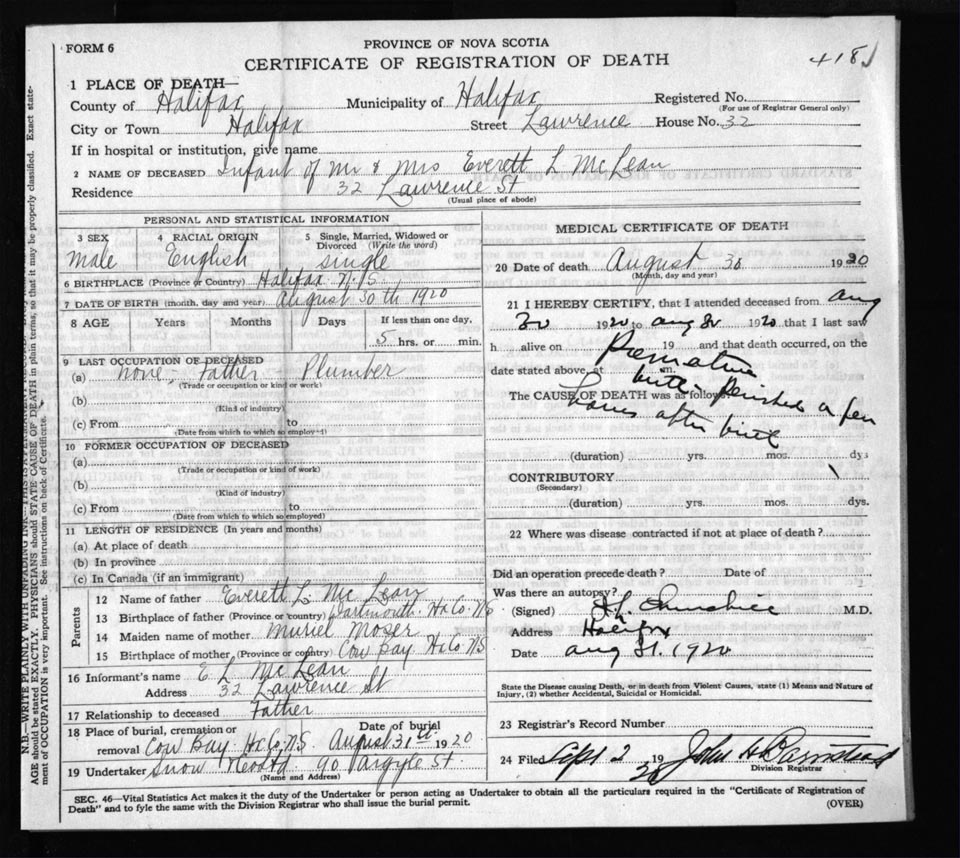 FORM 6
PROVINCE OF NOVA SCOTIA
CERTIFICATE OF REGISTRATION OF DEATH
418
1 PLACE OF DEATH—
County of Halifax Municipality of Halifax Registered No.
(For use of Registrar General only)
City or Town Halifax Street Lawrence House No. 32
If in hospital or institution, give name
2 NAME OF DECEASED Infant of Mr & Mrs Everett L McLean
Residence 32 Lawrence St
(Usual place of abode)
PERSONAL AND STATISTICAL INFORMATION
3 SEX 4 RACIAL ORIGIN 5 Single, Married, Widowed or Divorced (Write the word)
Male English single
6 BIRTHPLACE (Province or Country) Halifax N.S.
7 DATE OF BIRTH (month, day and year) August 30th 1920
8 AGE Years Months Days If less than one day,
5 hrs. or min.
9 LAST OCCUPATION OF DECEASED
(a) none; Father Plumber
(Trade or occupation or kind of work)
(b)
(Kind of industry)
(c) From to
(Date from which to which so employed)
10 FORMER OCCUPATION OF DECEASED
(a)
(Trade or occupation or kind of work)
(b)
(Kind of industry)
(c) From to
(Date from which to which so employed)
11 LENGTH OF RESIDENCE (In years and months)
(a) At place of death
(b) In province
(c) In Canada (if an immigrant)
Parents
12 Name of father Everett L. McLean
13 Birthplace of father (Province or country) Dartmouth Hx Co. N.S
14 Maiden name of mother Muriel Moser
15 Birthplace of mother (Province or country) Cow Bay. Hx Co. N.S
16 Informant's name E L McLean
Address 32 Lawrence St
17 Relationship to deceased Father
18 Place of burial, cremation or removal Cow Bay. Hx Co. N.S. Date of burial August 31st 1920
19 Undertaker Snow 90 Argyle St.
(Name and Address)
MEDICAL CERTIFICATE OF DEATH
20 Date of death August 30 1920
(Month, day and year)
21 I HEREBY CERTIFY, that I attended deceased from Aug
30 1920 to Aug 30 1920 that I last saw
h alive on 19 and that death occurred, on the
date stated above, at m.
The CAUSE OF DEATH was as follows
Premature
birth Perished a few
hours after birth
(duration) yrs. mos. dys
CONTRIBUTORY
(Secondary)
(duration) yrs. mos. dys.
22 Where was disease contracted if not at place of death?
Did an operation precede death? Date of
Was there an autopsy?
(Signed) Churchill M.D.
Address Halifax
Date Aug 31. 1920
State the Disease causing Death, or in death from Violent Causes, state (1) Means and Nature of
Injury, (2) whether Accidental, Suicidal or Homicidal.
23 Registrar's Record Number
24 Filed Sept 2 1920 John H Barnstead
Division Registrar
SEC. 46—Vital Statistics Act makes it the duty of the Undertaker or person acting as Undertaker to obtain all the particulars required in the "Certificate of Registration of
Death" and to fyle the same with the Division Registrar who shall issue the burial permit.
(OVER)
N.B.—WRITE PLAINLY WITH UNFADING INK—THIS IS A PERMANENT RECORD.
AGE should be stated EXACTLY. PHYSICIANS should STATE CAUSE OF DEATH in plain terms, so that it may be properly classified. Exact state-
ment of OCCUPATION is very important. See instructions on back of Certificate.